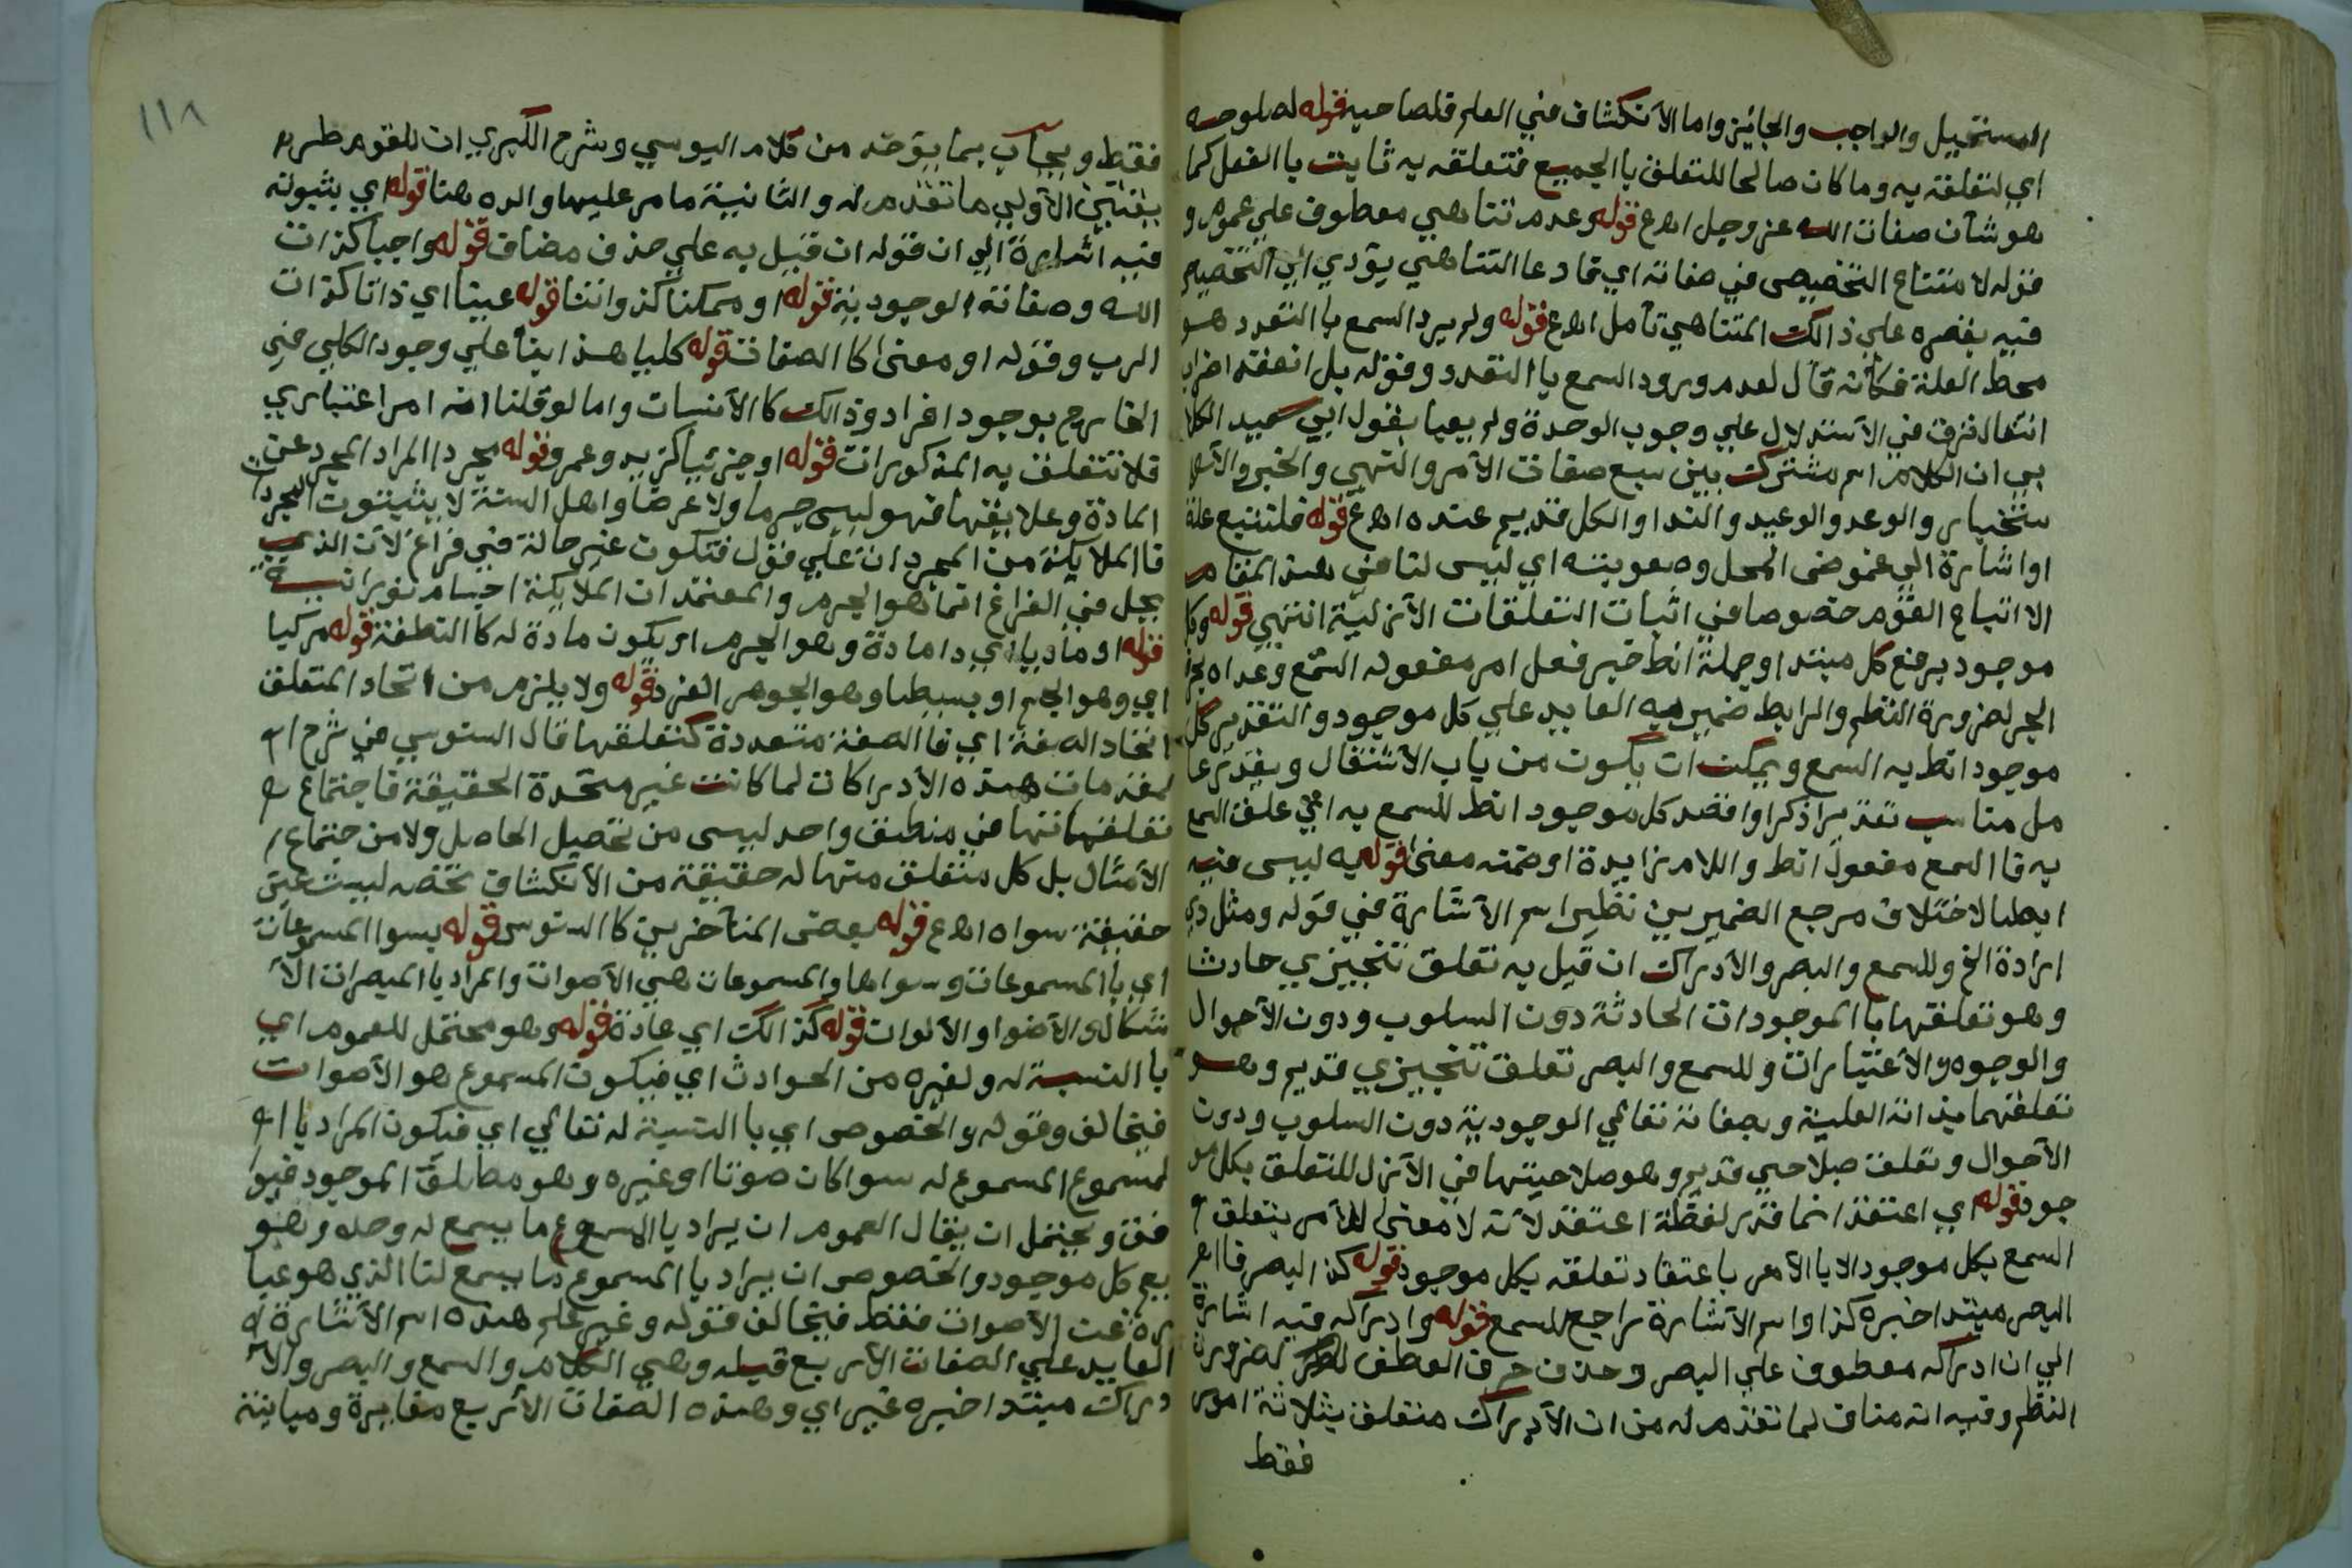 المستحيل والواجب والجائز واما الأنكشاف في العلم فلصاحبه قوله لصلوحه
اي لتعلقة به وما كان صالحا للتعلق با الجميع فتعلقه به ثابت با الفعل كما
هو شأن صفات الله عز وجل اهع قوله وعدم تناهي معطوف علي عموم و
قوله لامتناع التخصيص في صفاته اي تمادعا التناهي يؤدي الي التخصيص
فيه بقصره علي ذالك المتناهي تأمل اهع قوله ولم يرد السمع با التعدد هو
محط العلة فكأنه قال لعدم ورود السمع با التعدد وقوله بل انعقد اضراب
انتقال فرق في الأستدلال علي وجوب الوحدة ولم يعبا بقول ابي سعيد الكلا
بي ان الكلام اسم مشترك بين سبع صفات الأمر والنهي والخبر والأس
ستخبار والوعد والوعيد والندا والكل قديم عنده اهع قوله فلتتبع علة
او اشارة الي غموض المحل وصعوبته اي ليس لنا في هذا المقام
الا اتباع القوم خصوصا في اثبات التعلقات الأزلية انتهي قوله وكل
موجود برفع كل مبتدا وجملة انط خبر فعل امر مفعوله السمع وعداه بحر
الجر لضرورة النظم والرابط ضمير به العايد علي كل موجود والتقدير كل
موجود انط به السمع ويمكن ان يكون من باب الأشتغال ويقدر عا
مل مناسب تقديره اذكر او اقصد كل موجود انط للسمع به اي علق السمع
به فا السمع مفعول انط واللام زايدة او ضمنه معني قوله به ليس فيه
ايطا لاختلاف مرجع الضميرين نظير اسم الأشارة في قوله ومثل ذي
ارادة الخ وللسمع والبصر والأدراك ان قيل به تعلق تنجيزي حادث
وهو تعلقها با الموجودات الحادثة دون السلوب ودون الأحوال
والوجوه والأعتبارات وللسمع والبصر تعلق تنجيزي قديم وهو
تعلقهما بذاته العلية وبصفاته تعالي الوجودية دون السلوب ودون
الأحوال وتعلق صلاحي قديم وهو صلاحيتها في الأزل للتعلق بكل مو
جود قوله اي اعتقد انما قدر لفظة اعتقد لأنه لا معني للأمر بتعلق
السمع بكل موجود الا با الأمر باعتقاد تعلقه بكل موجود قوله كذا البصر فا ا
البصر مبتدا خبره كذا واسم الأشارة راجع للسمع قوله وادراكه فيه اشارة
الي ان ادراكه معطوف علي البصر وحذف حرف العطف لضرورة
النظم وفيه انه مناف لما تقدم له من ان الأدراك متعلق بثلاثة امور
فقط
١١٨
فقط ويجاب بما يؤخذ من كلام اليوسي وشرح الكبري ان للقوم طر
يقتين الأولي ما تقدم له والثانية ما مر عليها والده هنا قوله اي بثبوته
فيه اشارة الي ان قوله ان قيل به علي حذف مضاف قوله واجبا كذات
الله وصفاته الوجودية قوله او ممكنا كذواتنا قوله عينا اي ذاتا كذات
الرب وقوله او معني كا الصفات قوله كليا هذا بناء علي وجود الكلي في
الخارج بوجود افراده وذالك كا الأنسان واما لو قلنا انه امر اعتباري
فلا تتعلق به المذكورات قوله او جزئيا كزيد وعمرو قوله مجردا المراد المجرد عن
المادة وعلايقها فهو ليس جرما ولا عرضا واهل السنة لا يثبتون المجرد
فا الملايكة من المجردات علي قول فتكون غير حالة في فراغ لأن الذي
يحل في الفراغ انما هو الجرم والمعتمد ان الملايكة اجسام نورانية
قوله او ماديا اي ذا مادة وهو الجرم اي يكون مادة له كا النطفة قوله مركبا
اي وهو الجسم او بسيطا وهو الجوهر الفرد قوله ولا يلزم من اتحاد المتعلق
اتحاد الصفة اي فا الصفة متعددة كتعلقها قال السنوسي في شرح ا
لمقدمات هذه الأدراكات لما كانت غير متحدة الحقيقة فاجتماع
تعلقاتها في متعلق واحد ليس من تحصيل الحاصل ولا من اجتماع
الأمثال بل كل متعلق منها له حقيقة من الأنكشاف تخصه ليست عين
حقيقة سواه اهع قوله بعض المتأخرين كا السنوسي قوله بسوا المسموعات
اي با المسموعات وسواها والمسموعات هي الأصوات والمراد با المبصرات الأ
شكال والأضوا والألوان قوله كذالك اي عادة قوله وهو محتمل للعموم اي
با النسبة له ولغيره من الحوادث اي فيكون المسموع هو الأصوات
فيخالف وقوله والخصوص اي با النسبة له تعالي اي فيكون المراد با ا
لمسموع المسموع له سوا كان صوتا او غيره وهو مطلق الموجود فيوا
فق ويحتمل ان يقال العموم ان يراد با المسموع ما يسمع له وحده وهو
يعم كل موجود والخصوص ان يراد با المسموع ما يسمع لنا الذي هو عبا
رة عن الأصوات فقط فيخالف قوله وغير علم هذه اسم الأشارة
العايد علي الصفات الأربع قبله وهي الكلام والسمع والبصر والأ
دراك مبتدا خبره غير اي وهذه الصفات الأربع مغايرة ومباينة